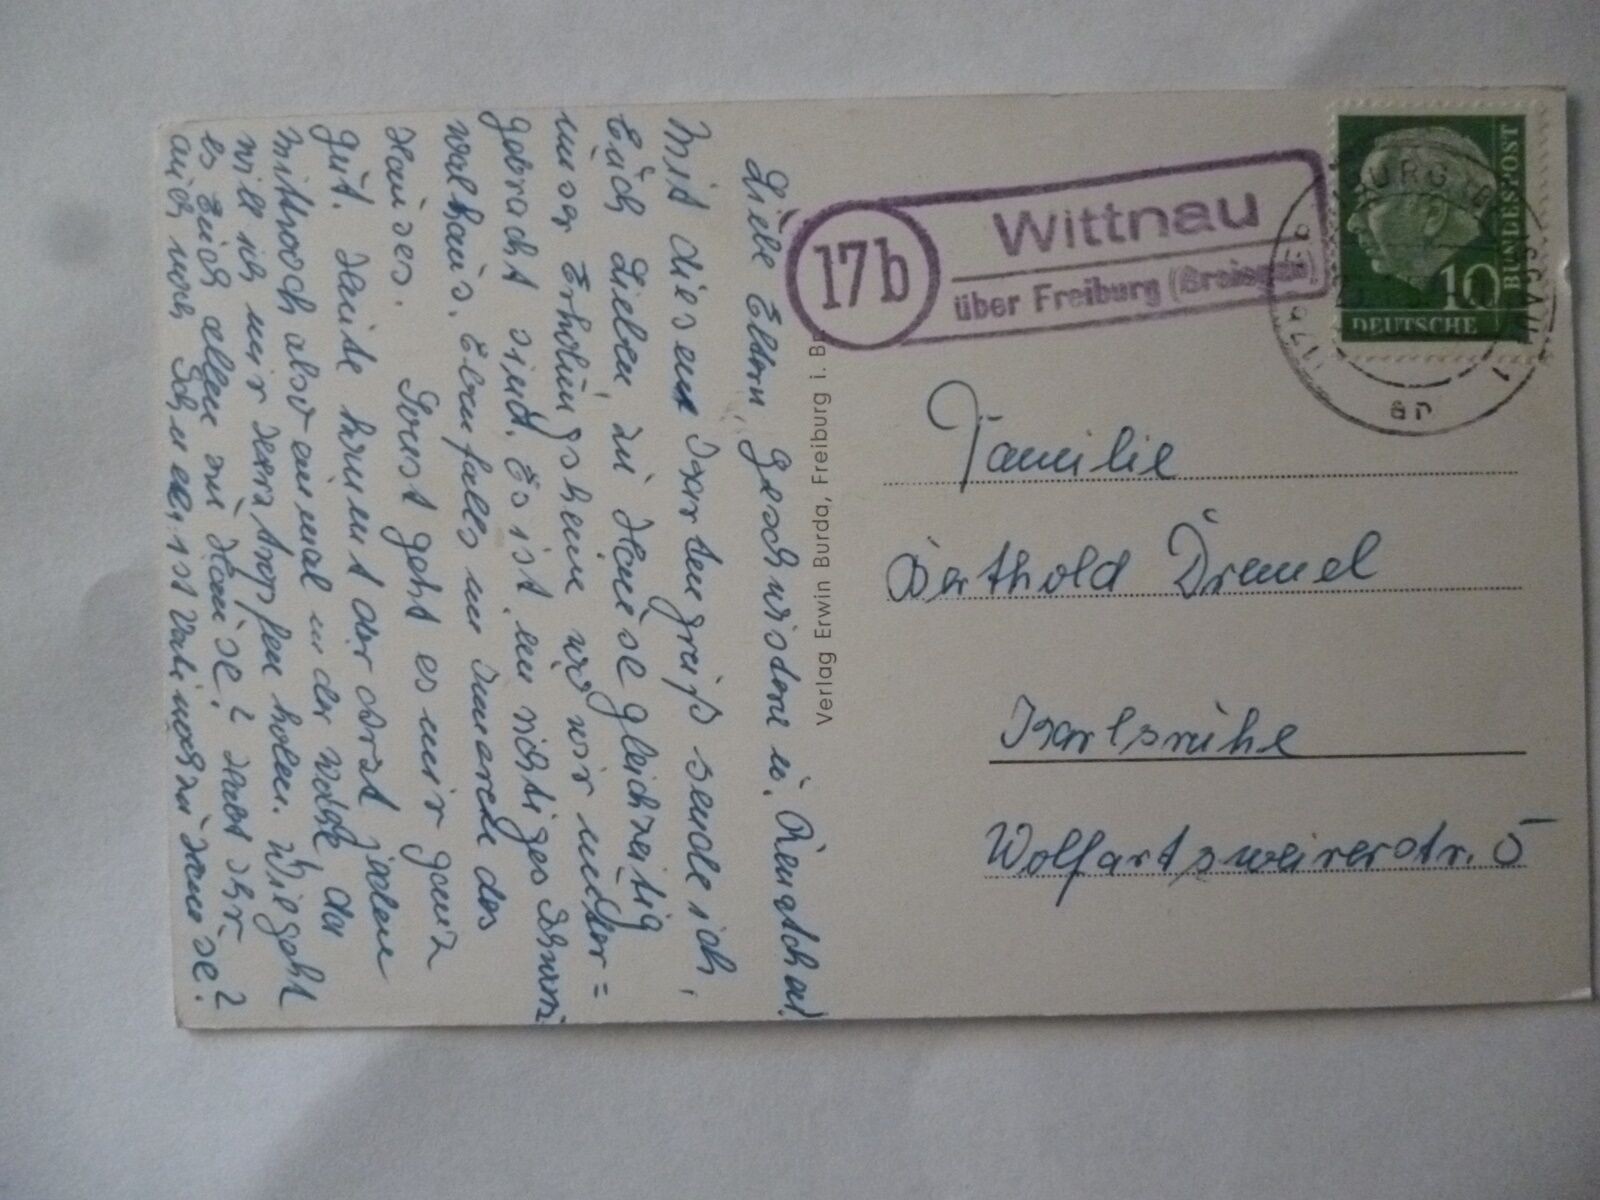 Liebe Eltern, Geschwistern u.
Mit diesem Kartengruß sende ich,
Euch Lieben zu Hause gleichzeitig
unser Erholungsheim wo wir unter=
gebracht sind. Es ist ein richtiges Schwarz
walhaus. Ebenfalls im innern des
Hauses. Sonst geht es mir ganz
gut. Heute kommt der Arzt jeden
Mittwoch also einmal in der Woche, da
will ich mir Herztropfen holen. Wie geht
es Euch allen zu Hause? Habt ihr
auch noch Schnee, ist noch zu Hause?
Verlag Erwin Burda, Freiburg i. Br.
17b
Wittnau
über Freiburg (Breisgau)
DEUTSCHE
BUNDESPOST
10
Familie
Berthold Dremel
Karlsruhe
Wolfartsweirerstr. 5